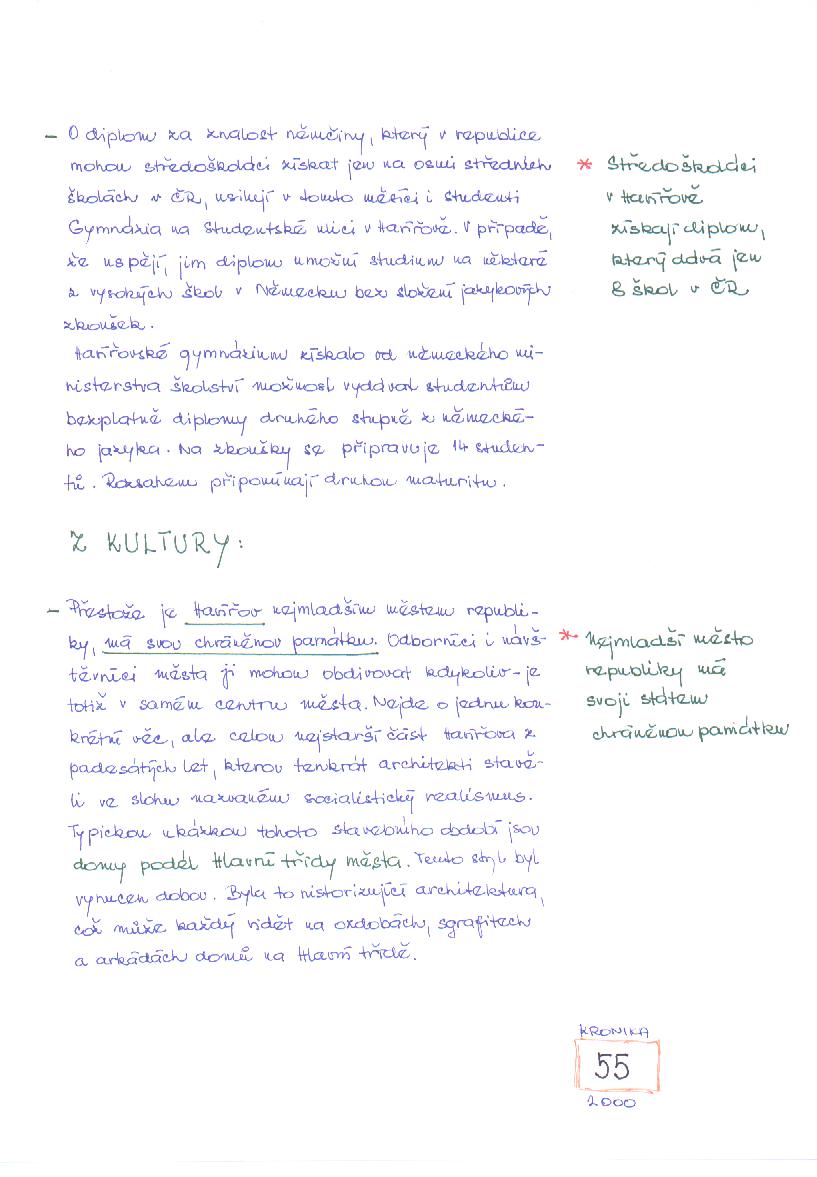 – O diplom za znalost němčiny, který v republice
mohou středoškoláci získat jen na osmi středních
školách v ČR, usilují v tomto měsíci i studenti
Gymnázia na Studentské ulici v Havířově. V případě,
že uspějí, jim diplom umožní studium na některé
z vysokých škol v Německu bez složení jazykových
zkoušek.
* Středoškoláci
v Havířově
získají diplom,
který dává jen
8 škol v ČR
Havířovské gymnázium získalo od německého mi-
nisterstva školství možnost vydávat studentům
bezplatně diplomy druhého stupně z německé-
ho jazyka. Na zkoušky se připravuje 14 studen-
tů. Rozsahem připomínají druhou maturitu.
Z KULTURY:
– Přestože je Havířov nejmladším městem republi-
ky, má svou chráněnou památku. Odborníci i návš-
těvníci města ji mohou obdivovat kdykoliv – je
totiž v samém centru města. Nejde o jednu kon-
krétní věc, ale celou nejstarší část Havířova z
padesátých let, kterou tenkrát architekti stavě-
li ve slohu nazvaném socialistický realismus.
Typickou ukázkou tohoto stavebního období jsou
domy podél Hlavní třídy města. Tento styl byl
vynucen dobou. Byla to historizující architektura,
což může každý vidět na ozdobách, sgrafitech
a arkádách domů na Hlavní třídě.
* Nejmladší město
republiky má
svoji státem
chráněnou památku
KRONIKA
55
2000